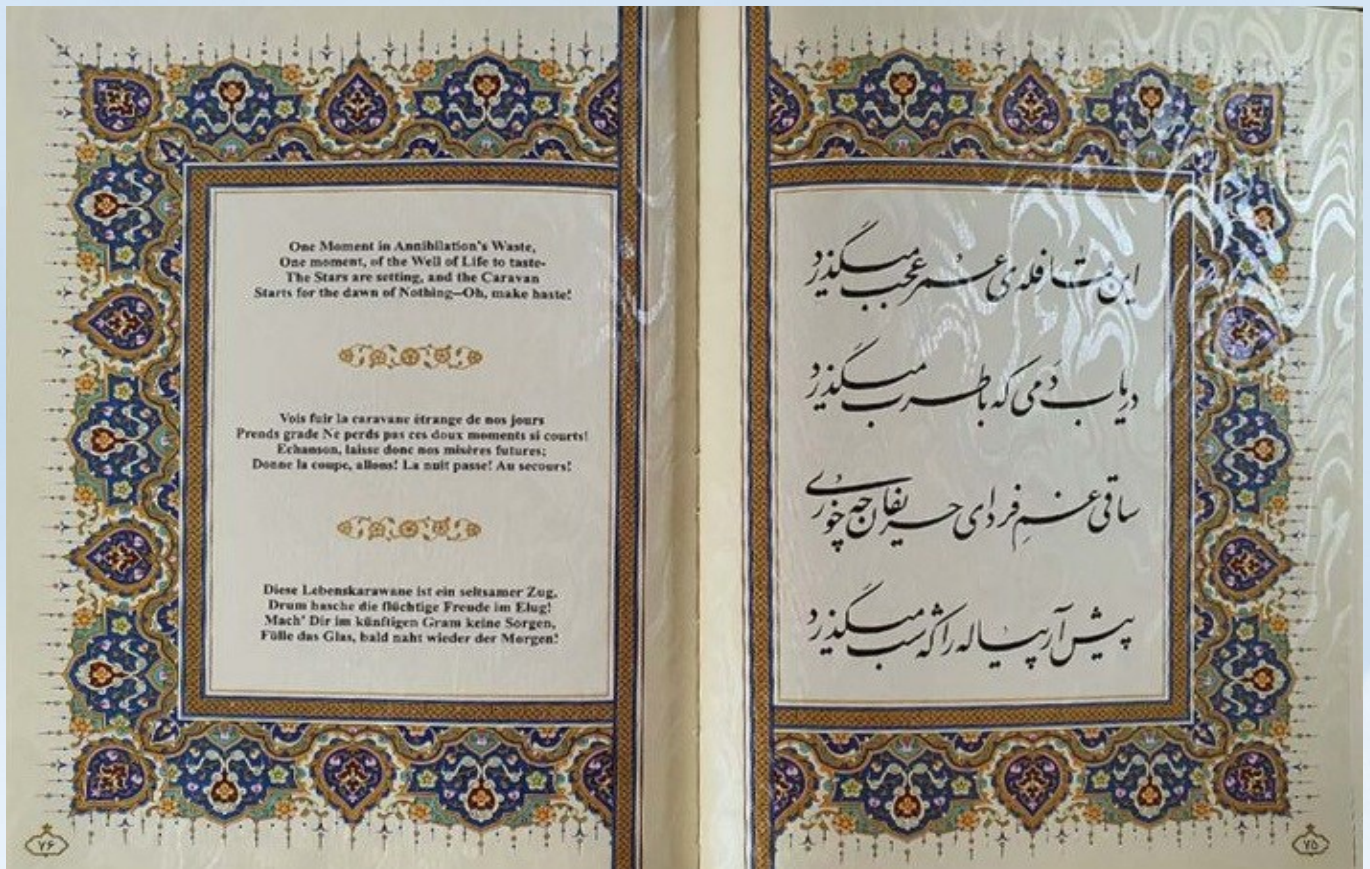 One Moment in Annihilation's Waste,
One moment, of the Well of Life to taste-
The Stars are setting, and the Caravan
Starts for the dawn of Nothing--Oh, make haste!
Vois fuir la caravane étrange de nos jours
Prends grade Ne perds pas ces doux moments si courts!
Echanson, laisse donc nos misères futures;
Donne la coupe, allons! La nuit passe! Au secours!
Diese Lebenskarawane ist ein seltsamer Zug,
Drum hasche die flüchtige Freude im Elug!
Mach' Dir im künftigen Gram keine Sorgen,
Fülle das Glas, bald naht wieder der Morgen!
۷۶
این قافله‌ی عمر عجب میگذرد
دریاب دَمی که با طرب میگذرد
ساقی غمِ فردای حریفان چه خوری
پیش آر پیاله را که شب میگذرد
۷۵